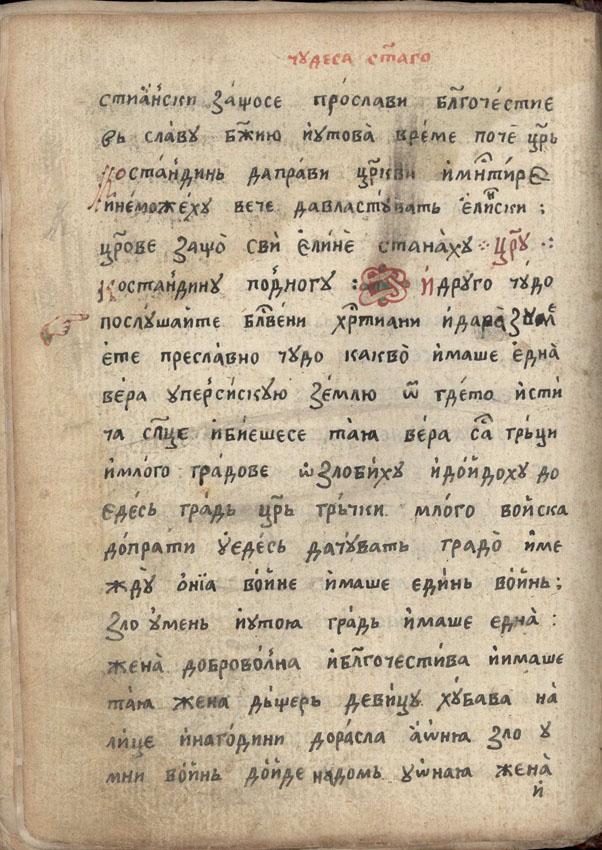 чудеса ст҃аго
стиꙗ́нски зⷶ́щосе просла́ви бл҃гоче́стие
вь сла́ву бж҃ию ѝутова̀ вре́ме поче̏ цр҃ь
ко́станди́нь дапра́ви цр҃кви ѝмнⷭ҇тире
ѝнемо́жеху вече давласту́вать е́лински :
цр҃ове защо̀ сви̏ е́лине̏ стана́ху ⁘ цр҃у ⁘
ко́стандину по́дногу : ѝ друго чу́до
послу́шайте бл҃ве́ни хрⷭ҇тиани ѝдаразуме́
е́те пресла́вно чу́до какво̀ ѝмаше една̀
ве́ра упе́рсискую зе́млю ѿ где́то ѝсти
ча сл҃нце ѝби́ешесе та́ꙗ ве́ра са гръци
ѝмло́го гра́дове ѡ҆зло́биху ѝдойдо́ху до
е́де́сь гра́дь цр҃ь гръчки мло́го во́йска
допра́ти уе́де́сь дачу́вать градо̀ ѝме
жду̀ о́нїа во́йне ѝмаше еди́нь во́йнь ;
зло̀ у́мень ѝуто́ю гра́дь ѝмаше една̀ :
жена̀ доброво́лна ѝбл҃гочести́ва ѝимаше
та́ꙗ жена̀ дъ́щерь деви́цу ху́бава на̀
ли́це ѝнаго́дини дора́сла а҆ѡ́нꙗ зло̀ у
мни во́йнь до́йде на до́мь уѡ́наю жена̀
ѝ